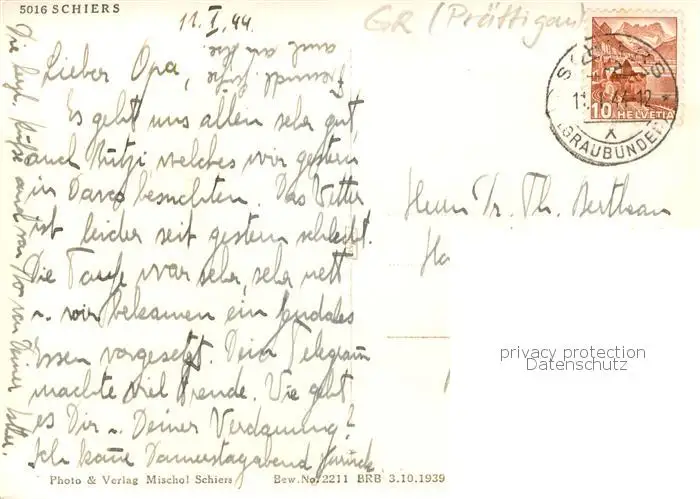 5016 SCHIERS
11. I. 44
GR (Prättigau)
Lieber Opa,
Es geht uns allen sehr gut,
auch Mutzi welches wir gestern
in Davos besuchten. Das Wetter
ist leider seit gestern schlecht.
Die Taufe war sehr, sehr nett
wir bekamen ein
Essen vorgesetzt. Dein Telegramm
machte viel Freude. Wie geht
es Dir u. Deiner Verdauung?
Ich komme Donnerstagabend zurück
Die herzl. Küsse auch von von Deiner
auch an die
Herrn Dr. Th. Bertheau
Ha
SCHIERS
11. 44-12
X
(GRAUBÜNDEN)
10 HELVETIA
privacy protection
Datenschutz
Photo & Verlag Mischol Schiers Bew. No. 2211 BRB 3.10.1939